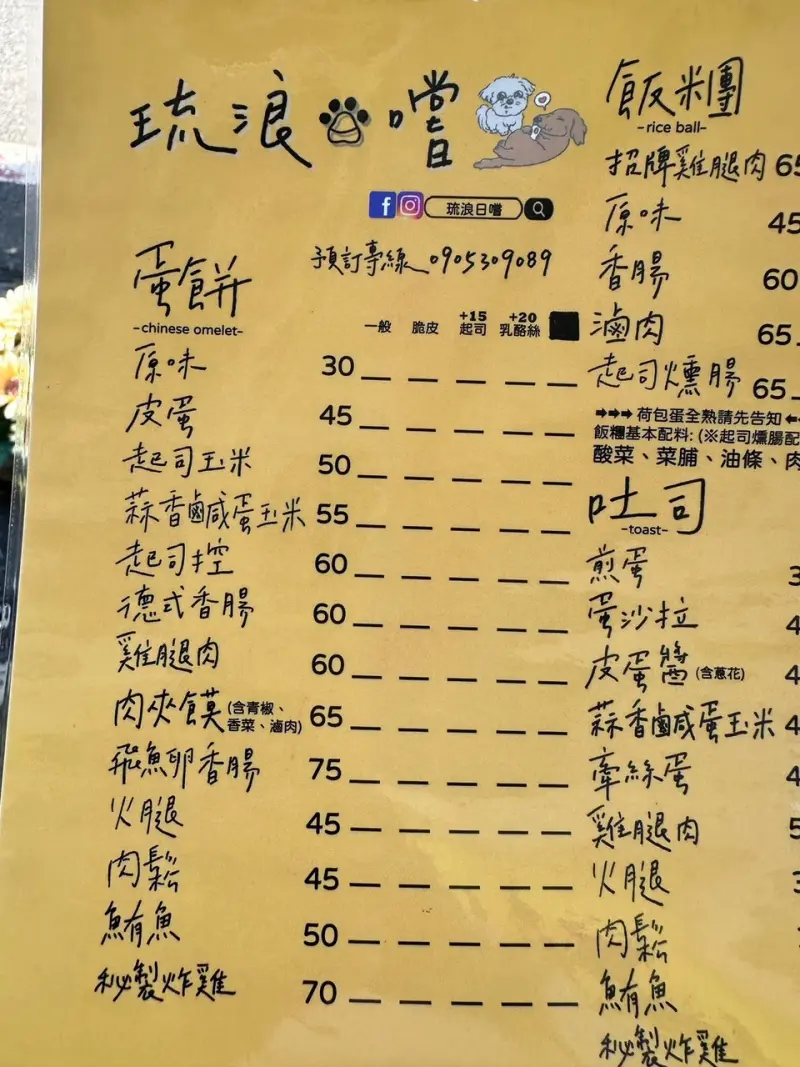 琉浪日嚐
琉浪日嚐
預訂專線 0905309089
蛋餅
-chinese omelet-
一般 脆皮 +15起司 +20乳酪絲
原味 30
皮蛋 45
起司玉米 50
蒜香鹹蛋玉米 55
起司控 60
德式香腸 60
雞腿肉 60
肉夾饃(含青椒、香菜、滷肉) 65
飛魚卵香腸 75
火腿 45
肉鬆 45
鮪魚 50
秘製炸雞 70
飯糰
-rice ball-
招牌雞腿肉 65
原味 45
香腸 60
滷肉 65
起司燻腸 65
➡➡➡荷包蛋全熟請先告知⬅
飯糰基本配料: (※起司燻腸配
酸菜、菜脯、油條、肉
吐司
-toast-
煎蛋 3
蛋沙拉 4
皮蛋醬(含蔥花) 4
蒜香鹹蛋玉米 4
牽絲蛋 4
雞腿肉 5
火腿 3
肉鬆
鮪魚
秘製炸雞